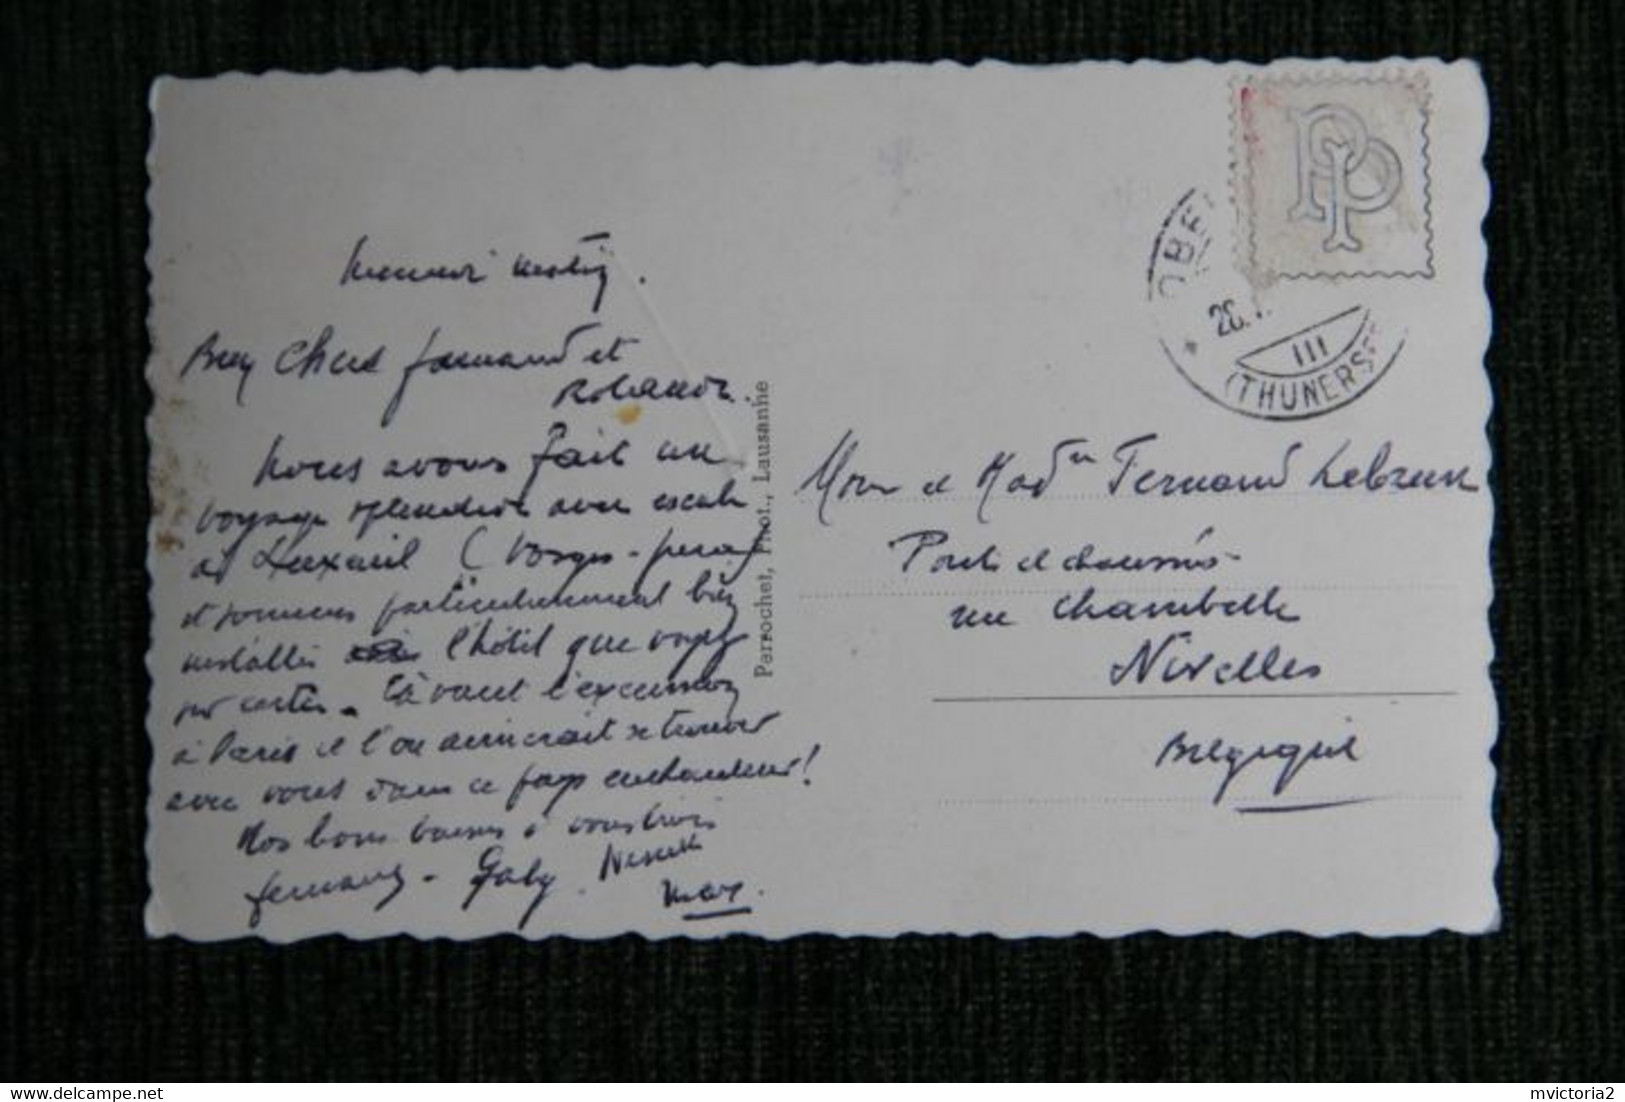 Bien Chers Fernand et
Rolande.
Nous avons fait un
voyage splendide avec escale
à Luxeuil (Vosges -
et sommes particulièrement bien
installés l'hôtel que voyez
sur cartes - Çà vaut l'excursion
à Paris et l'on aimerait se trouver
avec vous dans ce pays enchanteur!
Nos bons baisers à vous trois
Fernand - Gaby.
Max.
Parrochet, Phot., Lausanne
PP
OBE
20.
III
(THUNERS
Mons et Mad Fernand Lebrun
Ponts et chaussées
rue Chambelle
Nivelles
Belgique
mvictoria2